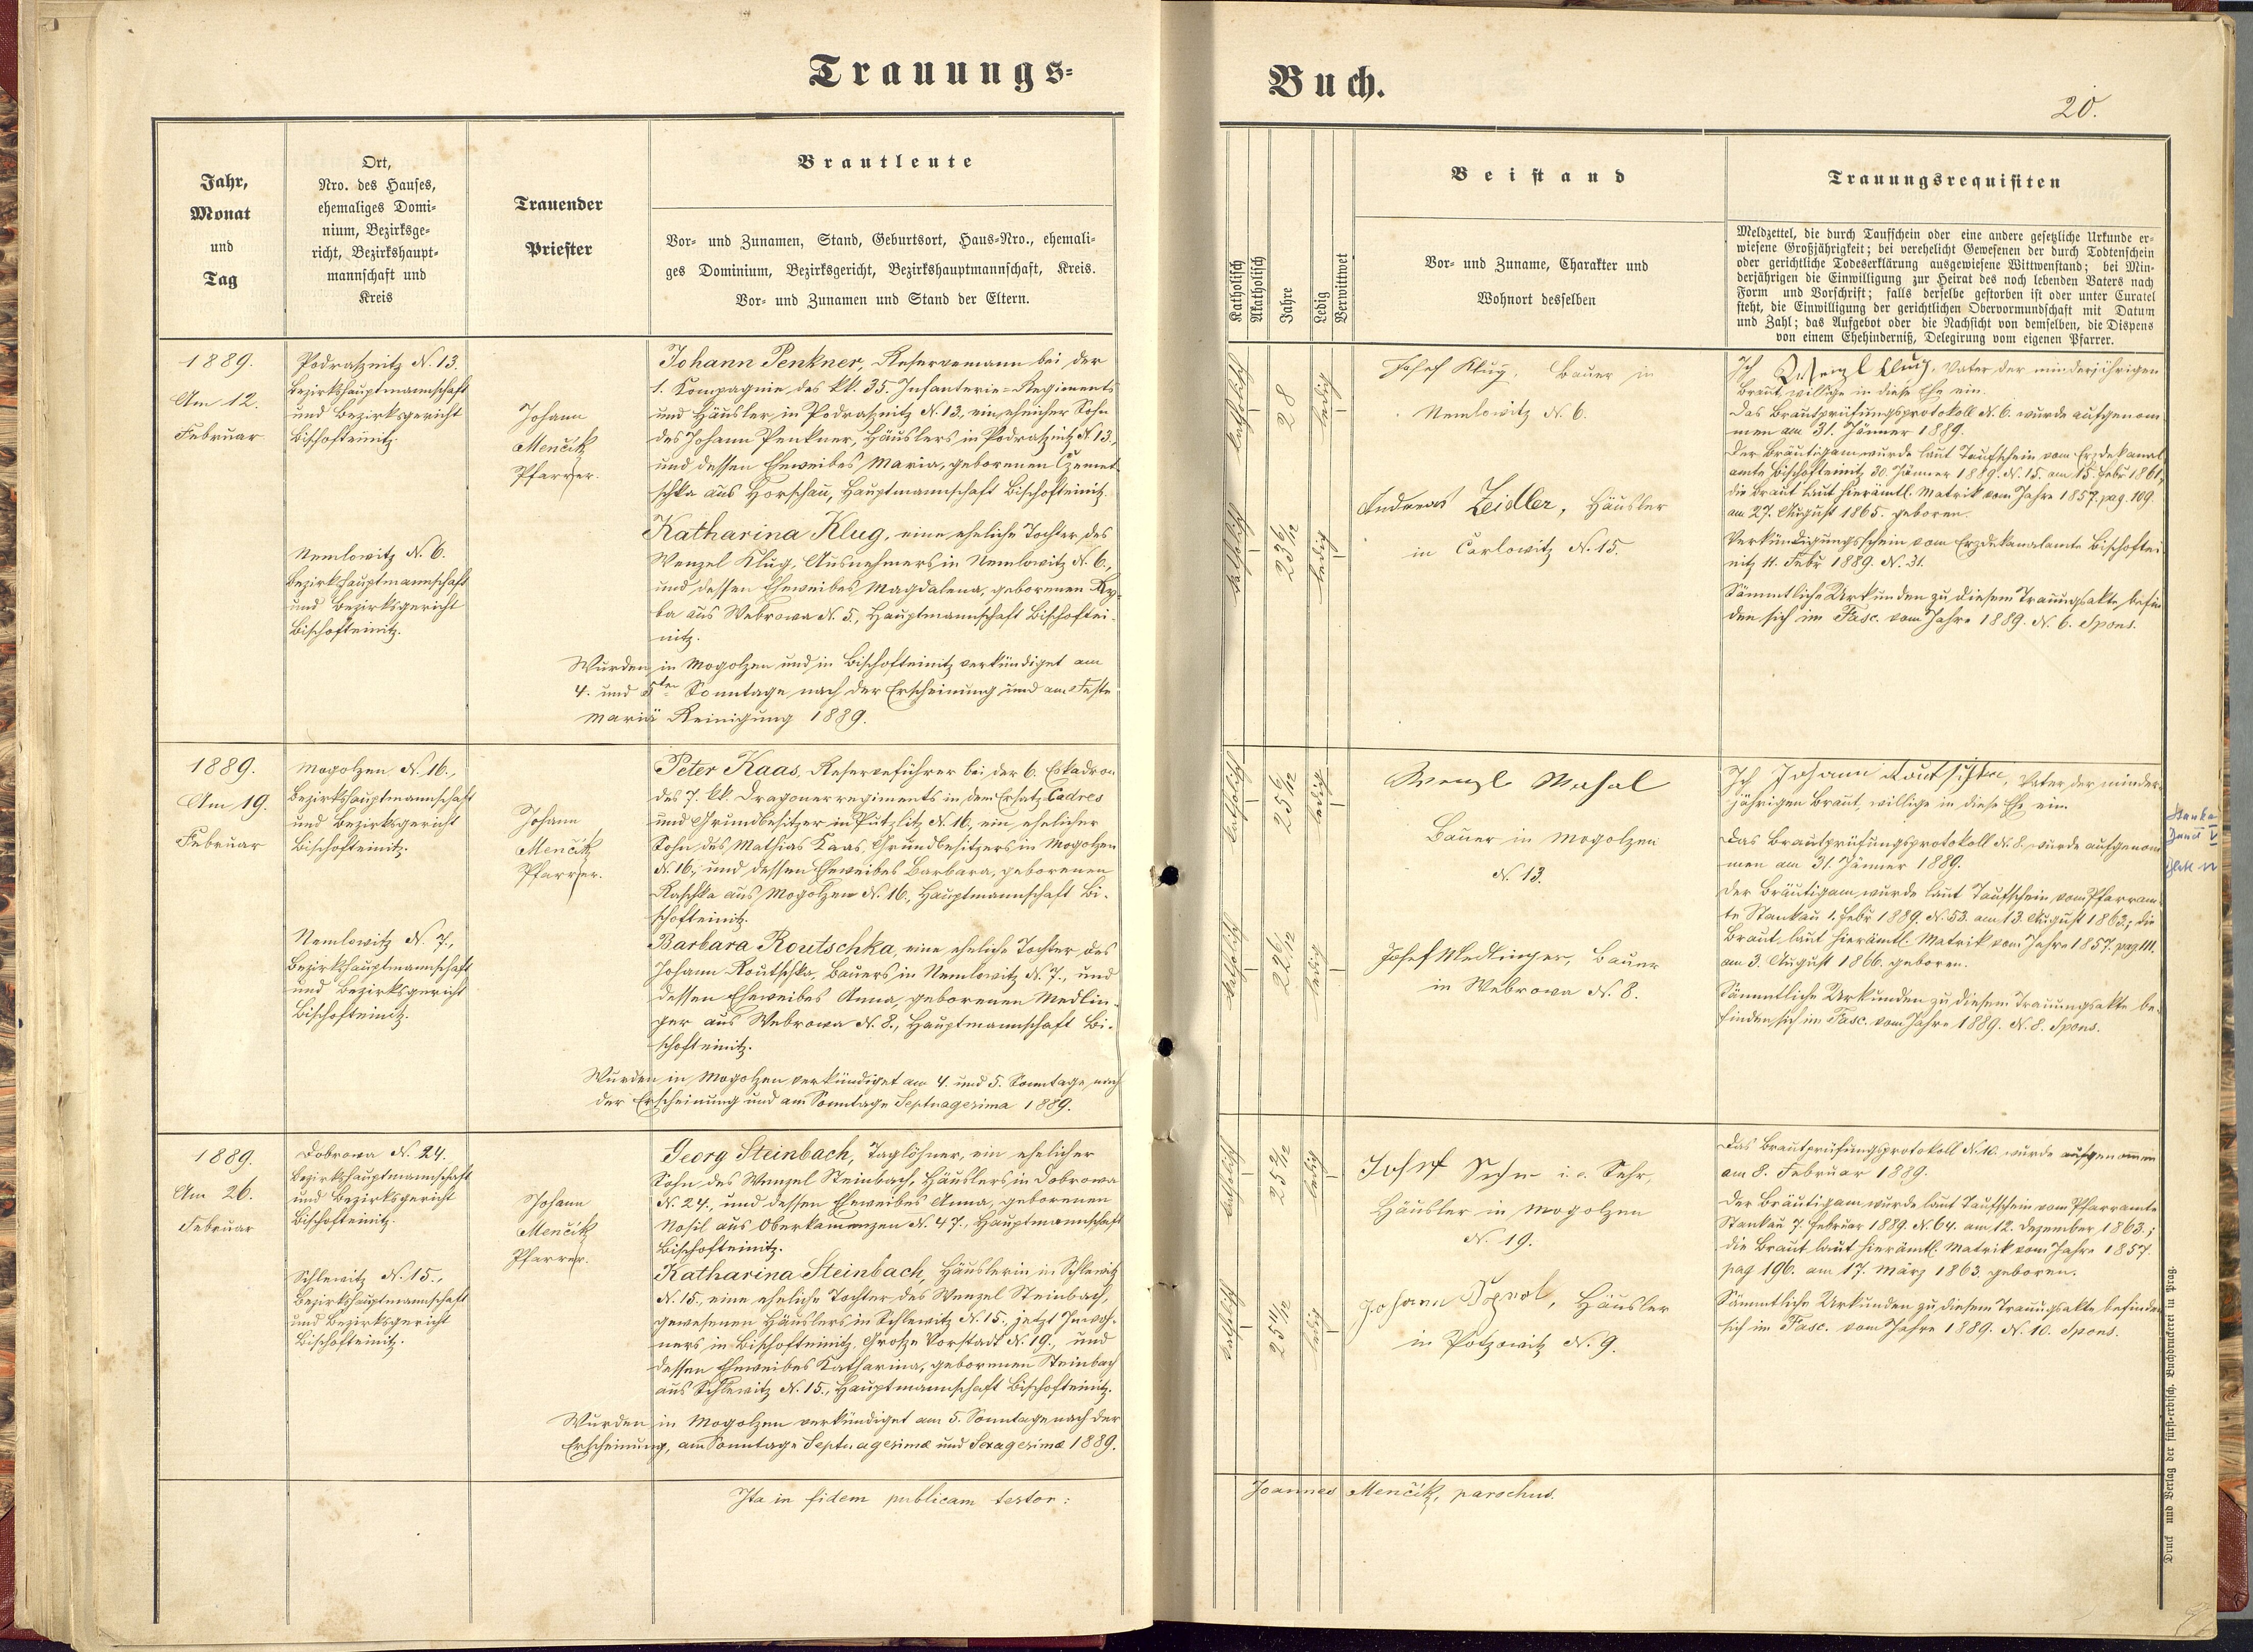 Trauungs-
Jahr,
Monat
und
Tag
Ort,
Nro. des Hauses,
ehemaliges Domi-
nium, Bezirksge-
richt, Bezirkshaupt-
mannschaft und
Kreis
Trauender
Priester
Brautleute
Vor- und Zunamen, Stand, Geburtsort, Haus-Nro., ehemali-
ges Dominium, Bezirksgericht, Bezirkshauptmannschaft, Kreis.
Vor- und Zunamen und Stand der Eltern.
1889.
Am 12.
Februar
Podraßnitz N. 13.
Bezirkshauptmannschaft
und Bezirksgericht
Bischofteinitz.
Nemlowitz N. 6.
Bezirkshauptmannschaft
und Bezirksgericht
Bischofteinitz.
Johann
Menčik
Pfarrer.
Johann Penkner, Reservemann bei der
1. Kompagnie des kk. 35. Infanterie-Regiments
und Häusler in Podraßnitz N. 13, ein ehelicher Sohn
des Johann Penkner, Häuslers in Podraßnitz N. 13.,
und dessen Eheweibes Maria, geborenen
schka aus Horschau, Hauptmannschaft Bischofteinitz.
Katharina Klug, eine eheliche Tochter des
Wenzel Klug, Ausnehmers in Nemlowitz N. 6.,
und dessen Eheweibes Magdalena, geborenen Ry-
ba aus Webrowa N. 5., Hauptmannschaft Bischoftei-
nitz.
Wurden in Mogolzen und in Bischofteinitz verkündiget am
4. und 5ten Sonntage nach der Erscheinung und am Feste
Mariä Reinigung 1889.
1889.
Am 19.
Februar
Mogolzen N. 16.,
Bezirkshauptmannschaft
und Bezirksgericht
Bischofteinitz.
Nemlowitz N. 7.,
Bezirkshauptmannschaft
und Bezirksgericht
Bischofteinitz.
Johann
Menčik
Pfarrer.
Peter Kaas, Reserveführer bei der 6. Eskadron
des 7. kk. Dragonerregiments in dem Ersatz-Cadres
und Grundbesitzer in Putzlitz N. 16., ein ehelicher
Sohn des Mathias Kaas, Grundbesitzers in Mogolzen
N. 16., und dessen Eheweibes Barbara, geborenen
Raschka aus Mogolzen N. 16., Hauptmannschaft Bi-
schofteinitz.
Barbara Routschka, eine eheliche Tochter des
Johann Routschka, Bauers in Nemlowitz N. 7., und
dessen Eheweibes Anna, geborenen Medlin-
ger aus Webrowa N. 8., Hauptmannschaft Bi-
schofteinitz.
Wurden in Mogolzen verkündiget am 4. und 5. Sonntage nach
der Erscheinung und am Sonntage Septuagesima 1889.
1889.
Am 26.
Februar
Dobrowa N. 24.
Bezirkshauptmannschaft
und Bezirksgericht
Bischofteinitz.
Schlewitz N. 15.,
Bezirkshauptmannschaft
und Bezirksgericht
Bischofteinitz.
Johann
Menčik
Pfarrer.
Georg Steinbach, Taglöhner, ein ehelicher
Sohn des Wenzel Steinbach, Häuslers in Dobrowa
N. 24., und dessen Eheweibes Anna, geborenen
Nosil aus Oberkamenzen N. 47., Hauptmannschaft
Bischofteinitz.
Katharina Steinbach, Häuslerin in Schlewitz
N. 15., eine eheliche Tochter des Wenzel Steinbach,
gewesenen Häuslers in Schlewitz N. 15., jetzt Inwoh-
ners in Bischofteinitz, Große Vorstadt N. 19., und
dessen Eheweibes Katharina, geborenen Steinbach
aus Schlewitz N. 15., Hauptmannschaft Bischofteinitz.
Wurden in Mogolzen verkündiget am 5. Sonntage nach der
Erscheinung, am Sonntage Septuagesimä und Sexagesimä 1889.
Ita in fidem publicam testor:
Buch.
20.
Katholisch
Akatholisch
Jahre
Ledig
Verwittwet
Beistand
Vor- und Zuname, Charakter und
Wohnort desselben
Trauungsrequisiten
Meldzettel, die durch Taufschein oder eine andere gesetzliche Urkunde er-
wiesene Großjährigkeit; bei verehelicht Gewesenen der durch Todtenschein
oder gerichtliche Todeserklärung ausgewiesene Wittwenstand; bei Min-
derjährigen die Einwilligung zur Heirat des noch lebenden Vaters nach
Form und Vorschrift; falls derselbe gestorben ist oder unter Curatel
steht, die Einwilligung der gerichtlichen Obervormundschaft mit Datum
und Zahl; das Aufgebot oder die Nachsicht von demselben, die Dispens
von einem Ehehinderniß, Delegirung vom eigenen Pfarrer.
katholisch
28
ledig
katholisch
23 6/12
ledig
Josef Klug, Bauer in
Nemlowitz N. 6.
Andreas Zeidler, Häusler
in Carlowitz N. 15.
Ich Wenzl Klug, Vater der minderjährigen
Braut, willige in diese Ehe ein.
Das Brautprüfungsprotokoll N. 6. wurde aufgenom-
men am 31. Jänner 1889.
Der Bräutigam wurde laut Taufschein vom Erzdekanal-
amte Bischofteinitz 30. Jänner 1889. N. 15. am 15. Febr. 1861,
die Braut laut hierämtl. Matrik vom Jahre 1857. pag. 109.
am 27. August 1865. geboren.
Verkündigungsschein vom Erzdekanalamte Bischoftei-
nitz 11. Febr. 1889. N. 31.
Sämmtliche Urkunden zu diesem Trauungsakte befin-
den sich im Fasc. vom Jahre 1889. N. 6. Spons.
katholisch
25 6/12
ledig
katholisch
22 6/12
ledig
Wenzl Masal
Bauer in Mogolzen
N. 13.
Josef Medlinger, Bauer
in Webrowa N. 8.
Ich Johann Routschka, Vater der minder-
jährigen Braut, willige in diese Ehe ein.
Das Brautprüfungsprotokoll N. 8. wurde aufgenom-
men am 31. Jänner 1889.
Der Bräutigam wurde laut Taufschein vom Pfarram-
te Stankau 1. Febr. 1889. N. 53. am 13. August 1863; die
Braut laut hierämtl. Matrik vom Jahre 1857. pag. 111.
am 3. August 1866. geboren.
Sämmtliche Urkunden zu diesem Trauungsakte be-
finden sich im Fasc. vom Jahre 1889. N. 8. Spons.
katholisch
25 2/12
ledig
katholisch
25 11/12
ledig
Josef Sehr i. e. Sehr,
Häusler in Mogolzen
N. 19.
Johann, Häusler
in Potzowitz N. 9.
Das Brautprüfungsprotokoll N. 10. wurde aufgenommen
am 8. Februar 1889.
Der Bräutigam wurde laut Taufschein vom Pfarramte
Stankau 7. Februar 1889. N. 64. am 12. Dezember 1863.;
die Braut laut hierämtl. Matrik vom Jahre 1857.
pag. 196. am 17. März 1863. geboren.
Sämmtliche Urkunden zu diesem Trauungsakte befinden
sich im Fasc. vom Jahre 1889. N. 10. Spons.
Joannes Menčik, parochus.
Druck und Verlag der fürst-erzbisch. Buchdruckerei in Prag.